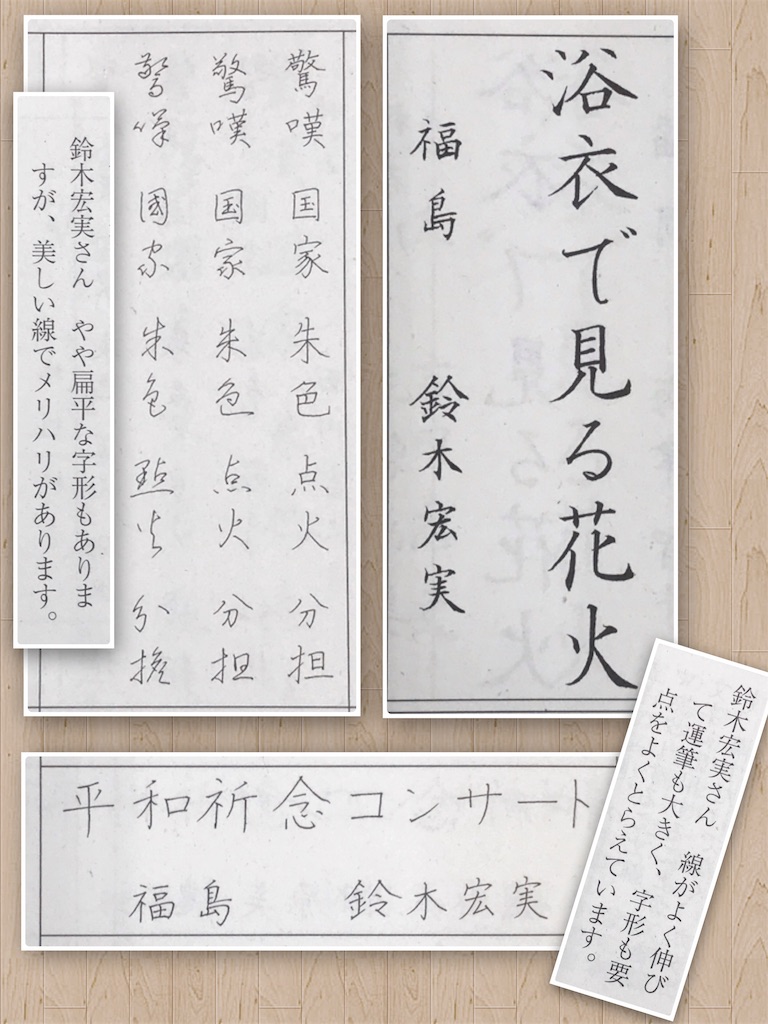 浴衣で見る花火
福島 鈴木宏実
驚嘆 国家 朱色 点火 分担
驚嘆 国家 朱色 点火 分担
驚嘆 國家 朱色 點火 分擔
鈴木宏実さん やや扁平な字形もありま
すが、美しい線でメリハリがあります。
平和祈念コンサート
福島 鈴木宏実
鈴木宏実さん 線がよく伸び
て運筆も大きく、字形も要
点をよくとらえています。